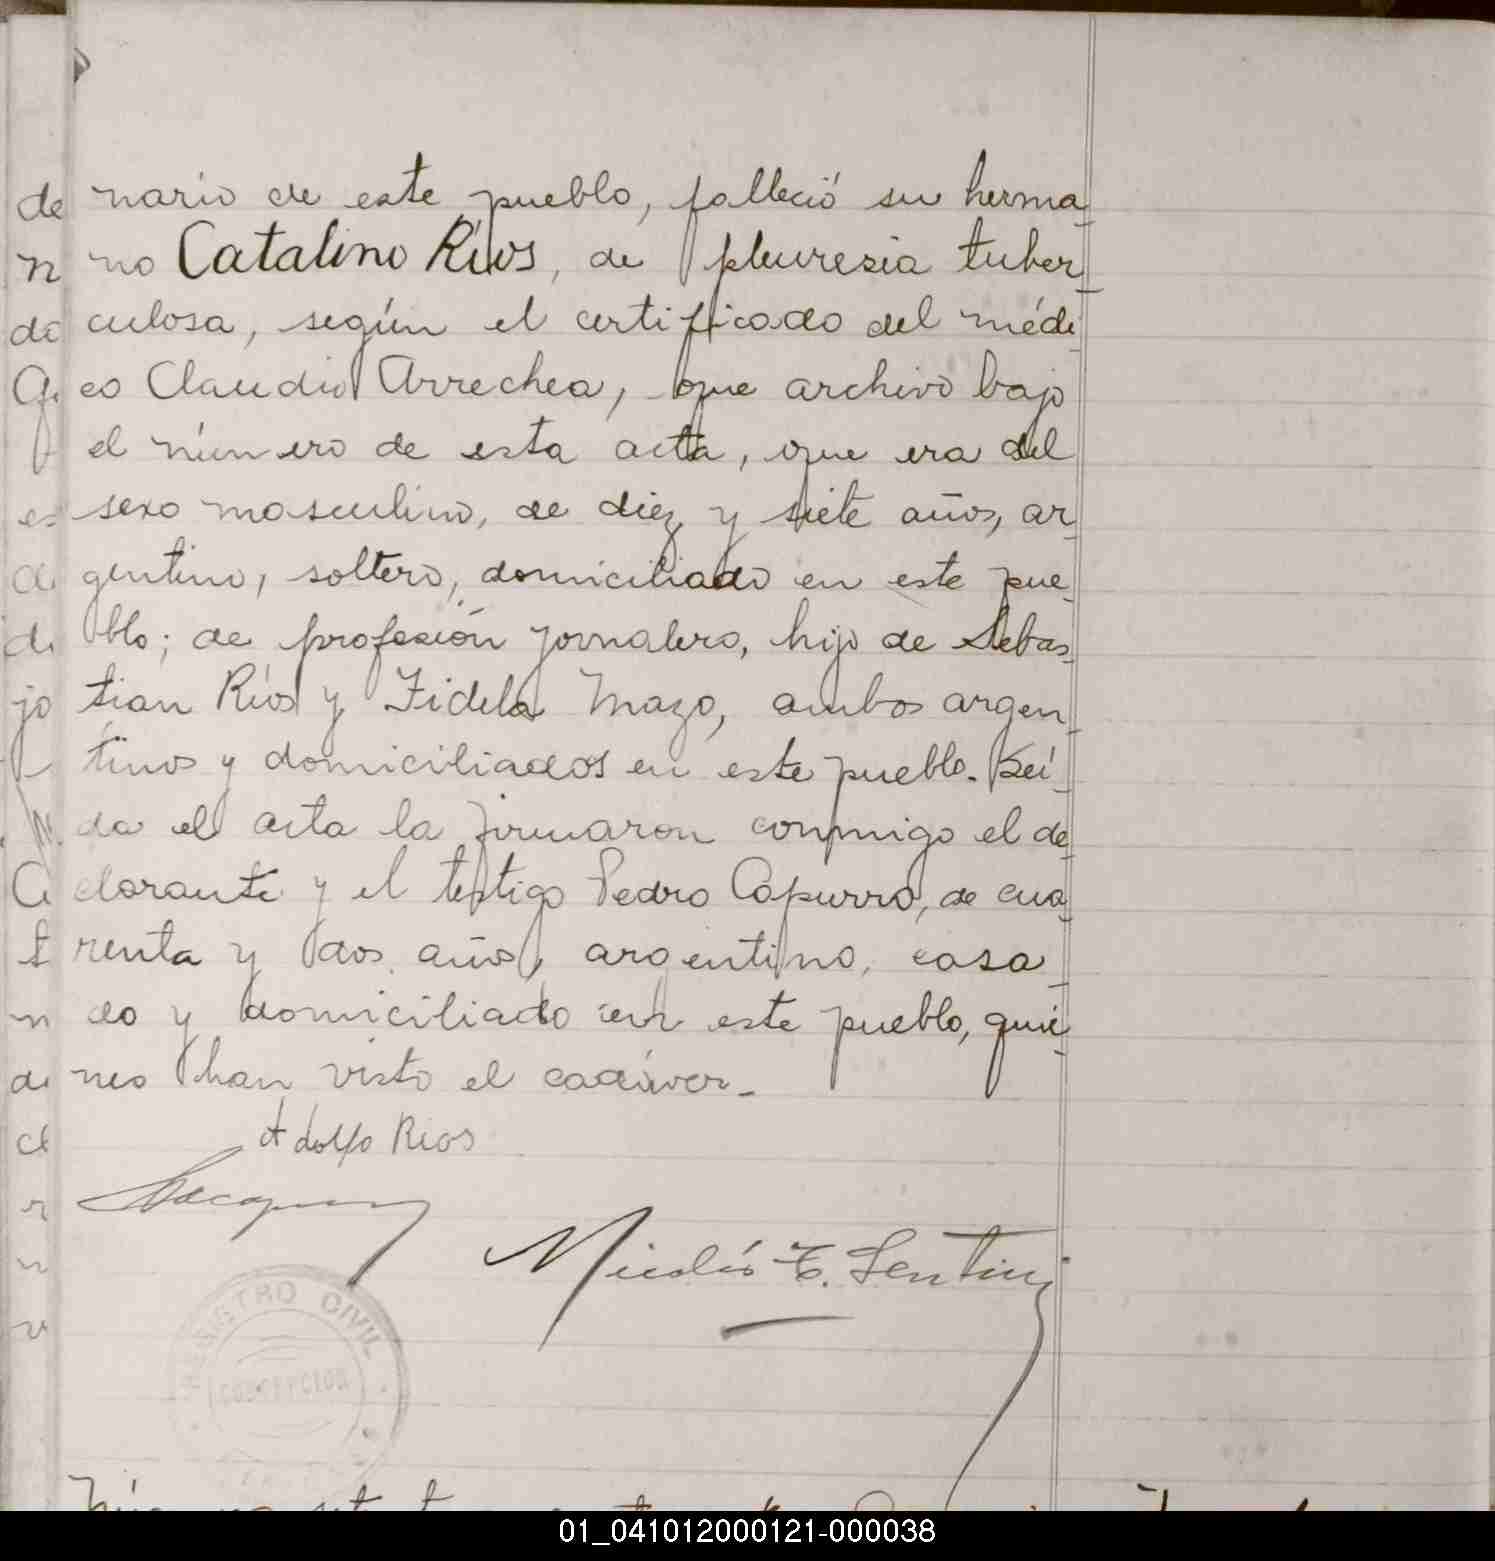 nario de este pueblo, falleció su herma-
no Catalino Ríos, de pleuresia tuber-
culosa, según el certificado del médi-
co Claudio Arrechea, que archivo bajo
el número de esta acta, que era del
sexo masculino, de diez y siete años, ar-
gentino, soltero, domiciliado en este pue-
blo; de profesión jornalero, hijo de Sebas-
tian Ríos y Fidela Mazo, ambos argen-
tinos y domiciliados en este pueblo. Leí-
da el acta la firmaron conmigo el de-
clarante y el testigo Pedro Capurro, de cua-
renta y dos años, argentino, casa-
do y domiciliado en este pueblo, quie-
nes han visto el cadáver.-
Adolfo Rios
Nicolás E.
REGISTRO CIVIL
CONCEPCION
01_041012000121-000038